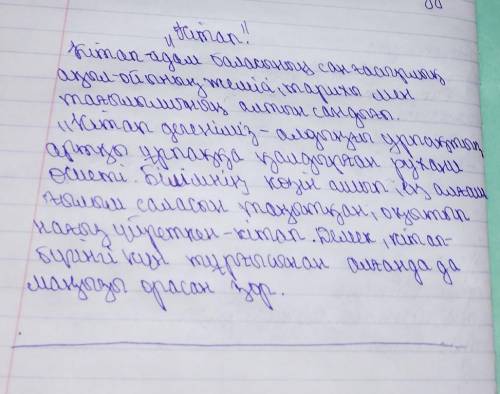 „Кітап!"
Кітап-адам баласының сан ғасырлық
ақыл-ойының жемісі, тарихы мен
тағылымының алтын сандығы.
„Кітап дегеніміз - алдыңғы ұрпақтың
артқы ұрпаққа қалдырған рухани
өсиеті. Білімнің көзін ашып, ең алғаш
ғылым саласын таратқан, оқытып
нағыз үйреткен - кітап. Демек, кітап-
бүгінгі күн тұрғысынан алғанда да
маңызы орасан зор.